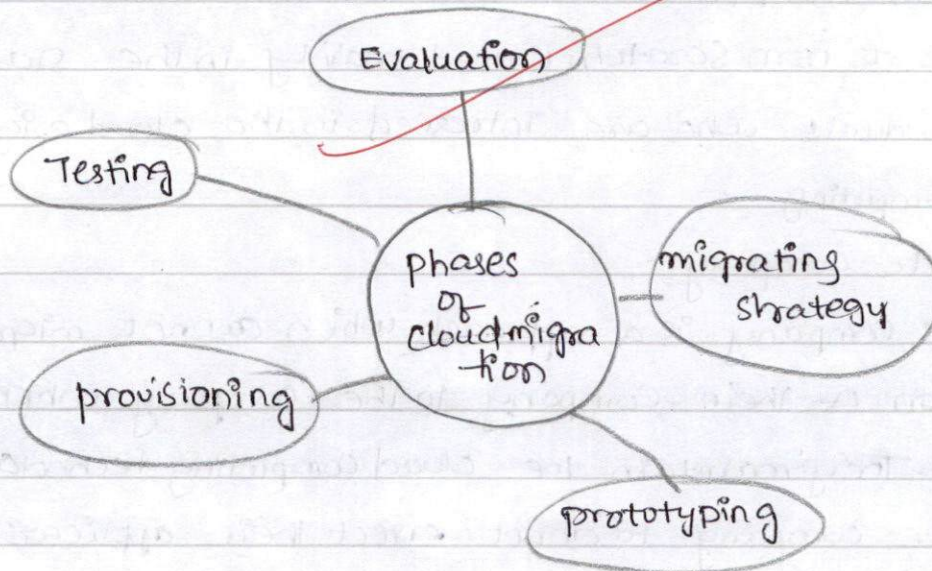 Evaluation
Testing
phases
of
cloudmigra
tion
migrating
strategy
provisioning
prototyping